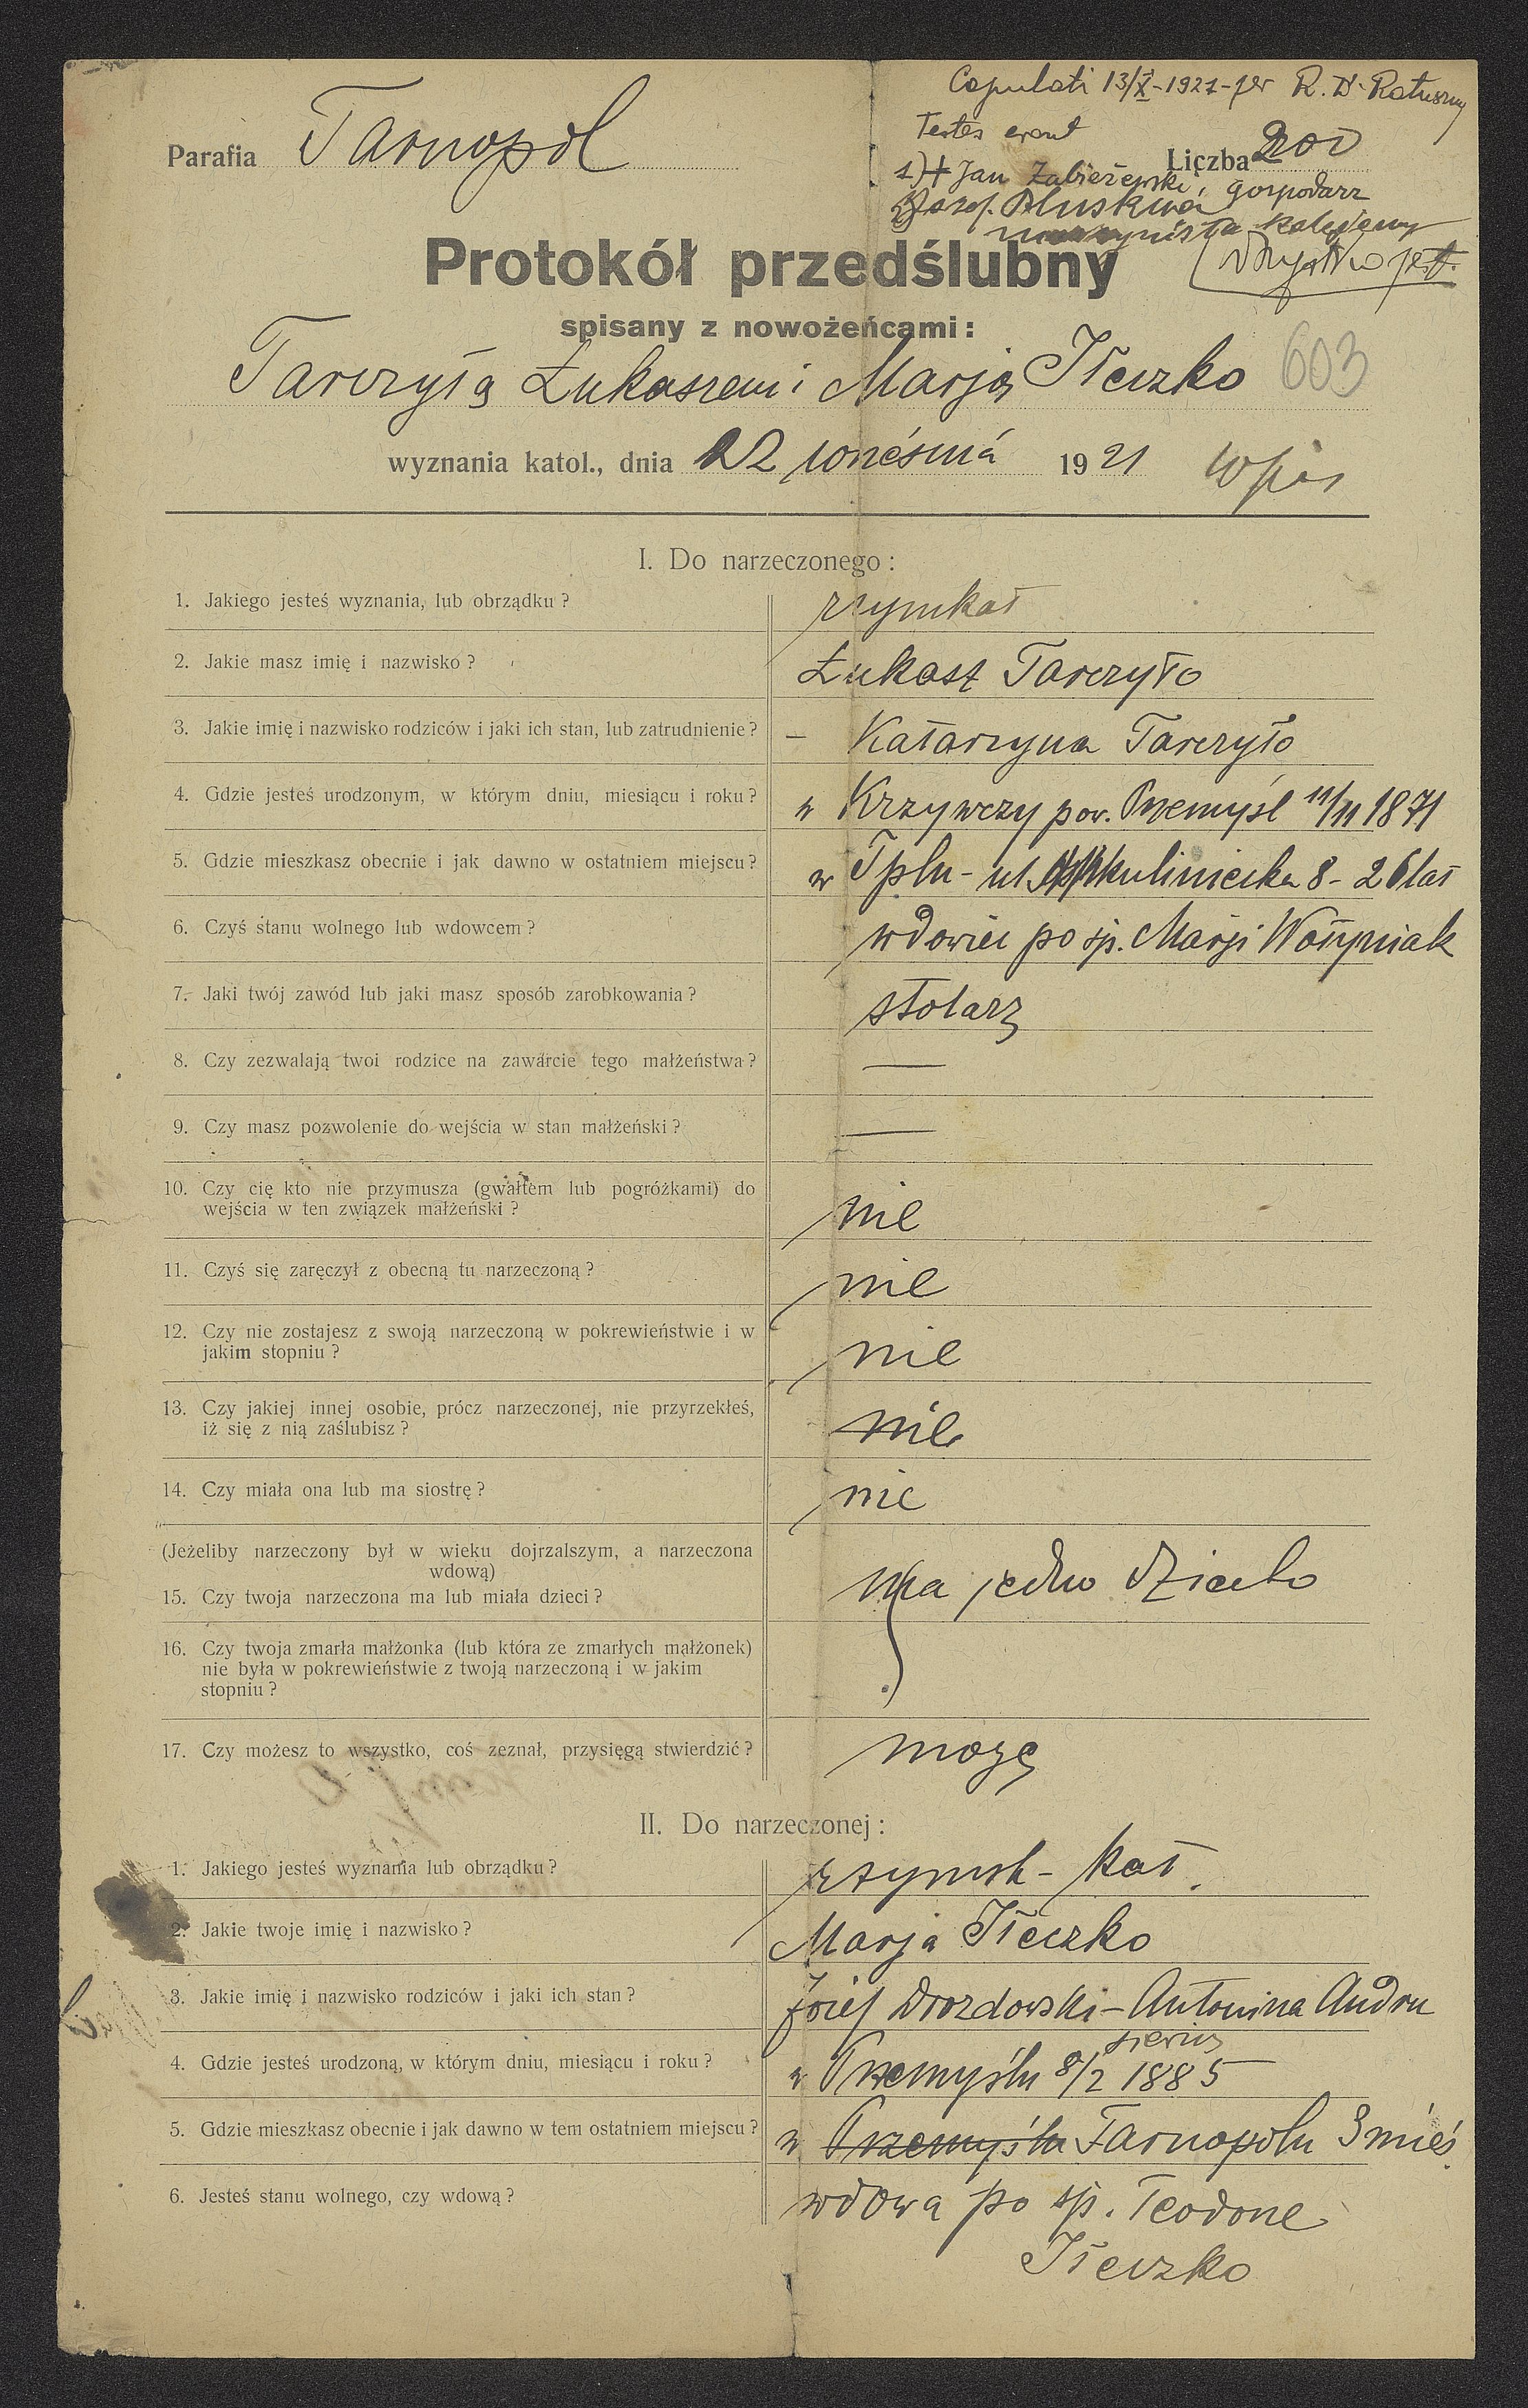 Copulati 13/X-1921-per R. D. Ratuszny
Parafia Tarnopol
Testes erant
Liczba 200
1) + Jan Zabieżewski, gospodarz
2) Józef
kolejowy
Protokół przedślubny
spisany z nowożeńcami:
Tarczyłą Łukaszem i Marją Iłeczko 603
wyznania katol., dnia 22 wrześniá 1921 wpis
I. Do narzeczonego:
1. Jakiego jesteś wyznania, lub obrządku? rzymkat
2. Jakie masz imię i nazwisko? Łukasz Tarczyło
3. Jakie imię i nazwisko rodziców i jaki ich stan, lub zatrudnienie? – Katarzyna Tarczyło
4. Gdzie jesteś urodzonym, w którym dniu, miesiącu i roku? w Krzywczy pow. Przemyśl 11/11 1871
5. Gdzie mieszkasz obecnie i jak dawno w ostatniem miejscu? w Tplu - ul. 8 - 26 lat
6. Czyś stanu wolnego lub wdowcem? wdowiec po śp. Marji Wołyniak
7. Jaki twój zawód lub jaki masz sposób zarobkowania? stolarz
8. Czy zezwalają twoi rodzice na zawarcie tego małżeństwa? —
9. Czy masz pozwolenie do wejścia w stan małżeński? —
10. Czy cię kto nie przymusza (gwałtem lub pogróżkami) do
wejścia w ten związek małżeński? nie
11. Czyś się zaręczył z obecną tu narzeczoną? nie
12. Czy nie zostajesz z swoją narzeczoną w pokrewieństwie i w
jakim stopniu? nie
13. Czy jakiej innej osobie, prócz narzeczonej, nie przyrzekłeś,
iż się z nią zaślubisz? nie
14. Czy miała ona lub ma siostrę? nie
(Jeżeliby narzeczony był w wieku dojrzalszym, a narzeczona
wdową)
15. Czy twoja narzeczona ma lub miała dzieci? ma jedno dziecko
16. Czy twoja zmarła małżonka (lub która ze zmarłych małżonek)
nie była w pokrewieństwie z twoją narzeczoną i w jakim
stopniu?
17. Czy możesz to wszystko, coś zeznał, przysięgą stwierdzić? mogę
II. Do narzeczonej:
1. Jakiego jesteś wyznania lub obrządku? rzymsk-kat.
2. Jakie twoje imię i nazwisko? Marja Iłeczko
3. Jakie imię i nazwisko rodziców i jaki ich stan? Józef Drozdowski - Antonina Andru
4. Gdzie jesteś urodzoną, w którym dniu, miesiącu i roku? w Przemyślu 8/2 1885
5. Gdzie mieszkasz obecnie i jak dawno w tem ostatniem miejscu? w Przemyślu Tarnopolu 3 mieś.
6. Jesteś stanu wolnego, czy wdową? wdowa po śp. Teodorze
Iłeczko